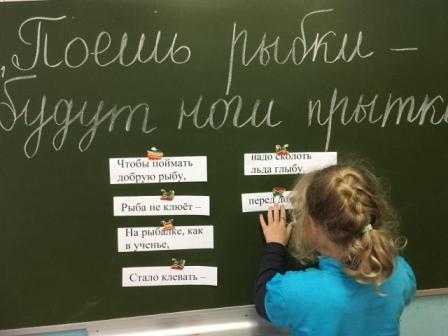 „Поешь рыбки –
будут ноги прытки
Чтобы поймать
добрую рыбу,
Рыба не клюёт –
На рыбалке, как
в ученье,
Стало клевать –
надо сколоть
льда глыбу.
перед